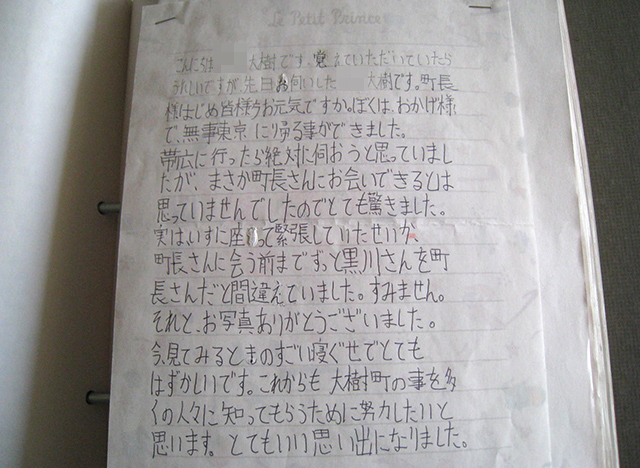 Le Petit Prince
こんにちは 大樹です。覚えていただいていたら
うれしいですが、先日お伺いした 大樹です。町長
様はじめ皆様方お元気ですか。ぼくは、おかげ様
で、無事東京に帰る事ができました。
帯広に行ったら絶対に伺おうと思っていまし
たが、まさか町長さんにお会いできるとは
思っていませんでしたのでとても驚きました。
実はいすに座って緊張していたせいか、
町長さんに会う前までずっと黒川さんを町
長さんだと間違えていました。すみません。
それと、お写真ありがとうございました。
今、見てみるとものすごい寝ぐせでとても
はずかしいです。これからも大樹町の事を多
くの人々に知ってもらうために努力したいと
思います。とてもいい思い出になりました。